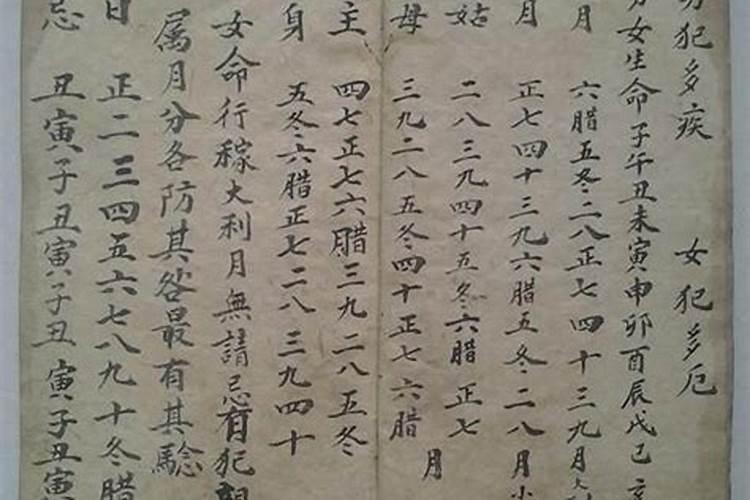 犯多疾 女犯多厄
女生命子午丑未寅申卯酉辰戌巳
月 六腊五冬二八正七四十三九月
月 正七四十三九六腊五冬二八月小
姑 二八三九四十五冬六腊正七
母 三九二八五冬四十正七六腊 月
主 四七正七六腊三九二八五冬
身 五冬六腊正七二八三九四十
女命行稼大利月無請忌有犯
属月分各防其咎最有其驗
日 正二三四五六七八九十冬腊
忌 丑寅子丑寅子丑寅子丑寅